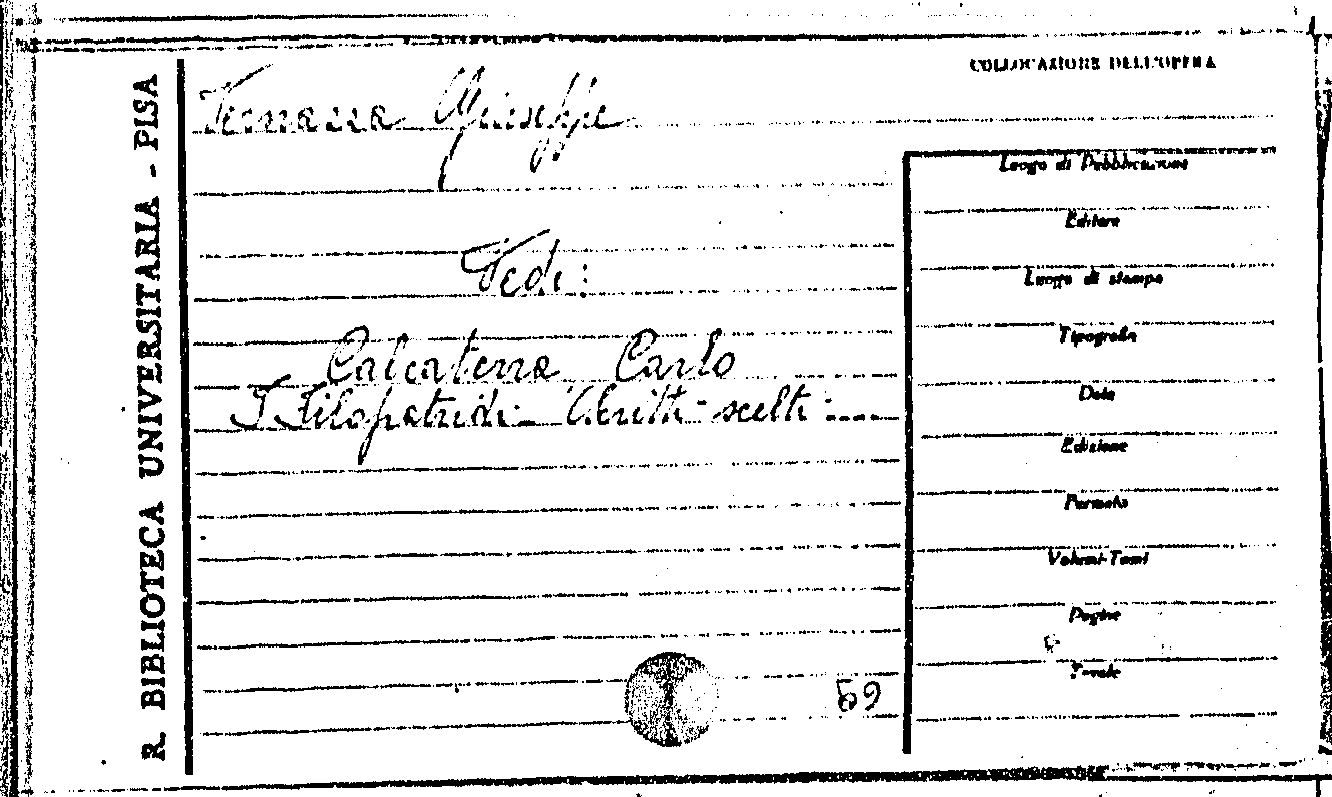 R. BIBLIOTECA UNIVERSITARIA - PISA
COLLOCAZIONE DELL'OPERA
Vernazza Giuseppe
Vedi:
Calcaterra Carlo
I Filopatridi - Scritti scelti -
Luogo di Pubblicazione
Editore
Luogo di stampa
Tipografia
Data
Edizione
Formato
Volumi-Tomi
Pagine
Tavole
59